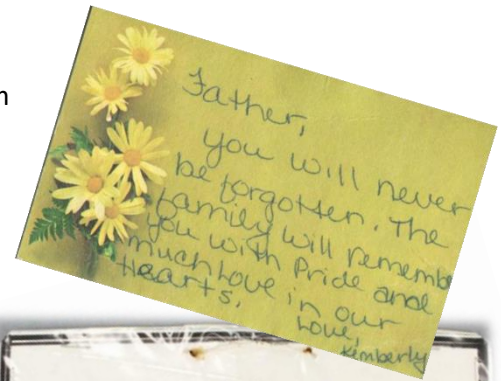 Father,
you will never
be forgotten. The
family will remember
you with Pride and
much Love in our
Hearts.
Love,
Kimberly